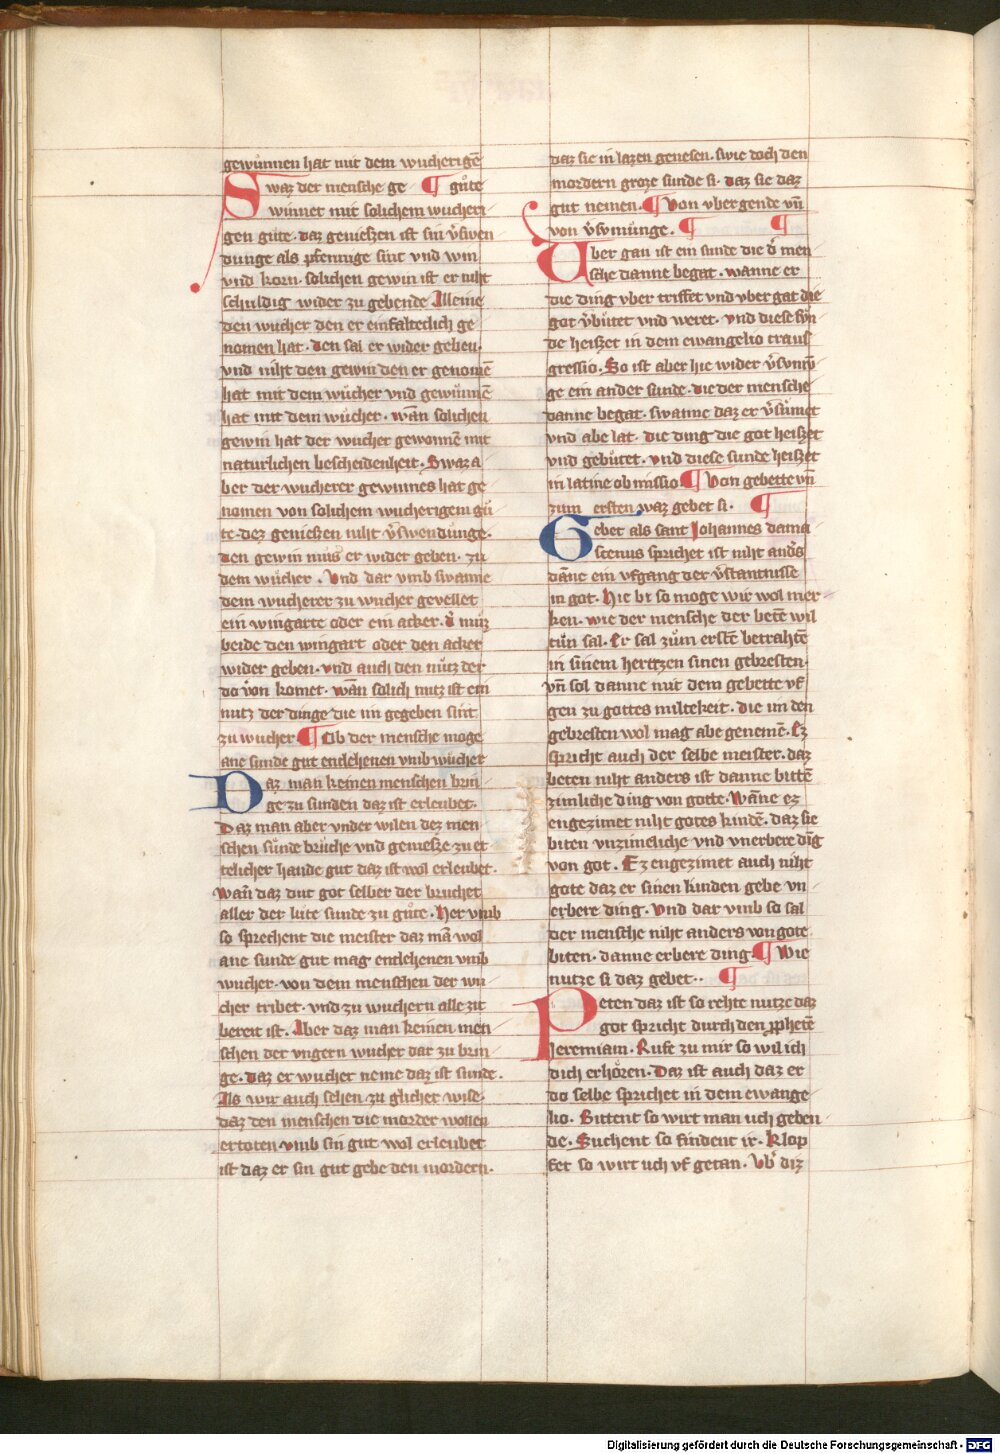 gewuͦnnen hat mit dem wucherigē
Swaz der mensche ge ¶ guͦte
winnet mit solichem wucheri
gen guͦte. daz genieſzen ist sin v̄swen
dunge als pfennige sint vnd win
vnd korn. solichen gewin ist er niht
schuldig wider zu gebende. Alleine
den wucher den er einfalteclich ge
nomen hat. den sal er wider geben.
vnd niht den gewin den er genomē
hat mit dem wuͦcher vnd gewuͦnnē
hat mit dem wuͦcher. wan solichen
gewin hat der wucher gewonnē mit
naturlichen bescheidenheit. Swaz a
ber der wucherer gewinnes hat ge
nomen von solichem wucherigem guͦ
te. dez genieſzen niht v̄swenduͦnge.
den gewin muͦs er wider geben. zu
dem wuͦcher. Vnd dar vmb swanne
dem wucherer zu wucher gevellet
ein wingarte oder ein acker. d̾ muͦz
beide den wingart oder den acker
wider geben. vnd auch den nuͦtz der
do von komet. wan solich nutz ist ein
nutz der dinge die im gegeben sint
zu wucher. ¶ Ob der mensche moge
ane sunde gut entlehenen vmb wuͦcher
Daz man keinen menschen brin
ge zu sunden daz ist erleubet.
Daz man aber vnder wilen dez men
schen suͦnde bruͦche vnd genieſze zu et
telicher hande gut daz ist wol erleubet.
wan̄ daz dut got selber der bruchet
aller der lute sunde zu guͦte. Her vmb
so sprechent die meister daz mā wol
ane sunde gut mag entlehenen vmb
wucher. von dem menschen der wu
cher tribet. vnd zu wuchern alle zit
bereit ist. Aber daz man keinen men
schen der vngern wucher dar zu brin
ge. daz er wucher neme daz ist sunde.
Als wir auch sehen. zu glicher wise.
daz den menschen die morder wollen
ertoten vmb sin gut wol erleubet
ist daz er sin gut gebe den mordern.
daz sie in lazen genesen. swie doch den
mordern groze sunde si. daz sie daz
gut nemen. ¶ Von vbergende vn̄
von v̄sumuͦnge. ¶ ¶
Uber gan ist ein sunde die d̾ men
sche danne begat. wanne er
die ding vber triffet vnd vber gat die
got v̄buͦtet vnd weret. vnd diese suͦn
de heiſzet in dem ewangelio trans
gressio. So ist aber hie wider v̄sumū
ge ein ander sunde. die der mensche
danne begat. swanne daz er v̄suͦmet
vnd abe lat. die ding die got heiſzet
vnd gebuͦtet. vnd diese sunde heiſzet
in latine obmissio ¶ Von gebette vn̄
zum ersten waz gebet si. ¶
Gebet als sant Johannes dama
scenus sprichet ist niht and̾s
dāne ein vfgang der v̄stantnisse
in got. Hie bi so moge wir wol mer
ken. wie der mensche der betē wil
tuͦn sal. Er sal zuͦm erstē betrahtē
in sinem hertzen sinen gebresten.
vn̄ sol danne mit dem gebette vf
gen zu gottes miltekeit. die im den
gebresten wol mag abe genemē. Ez
spricht auch der selbe meister. daz
beten niht anders ist danne bittē
zimliche ding von gotte. Wāne ez
engezimet niht gotes kindē. daz sie
biten vnzimeliche vnd vnerbere ding
von got. Ez engezimet auch niht
gote daz er sinen kinden gebe vn
erbere ding. Vnd dar vmb so sal
der mensche niht anders von gote
biten. danne erbere ding. ¶ Wie
nutze si daz gebet. ¶
Beten daz ist so rehte nutze daz
got spricht durch den ꝓphetē
Jeremiam. Rufe zu mir so wil ich
dich erhoͤren. Daz ist auch daz er
do selbe sprichet in dem ewange
lio. Bittent so wirt man uch geben
de. Suchent so findent ir. Klop
fet so wirt uch vf getan. Vb̾ diz
Digitalisierung gefördert durch die Deutsche Forschungsgemeinschaft - DFG